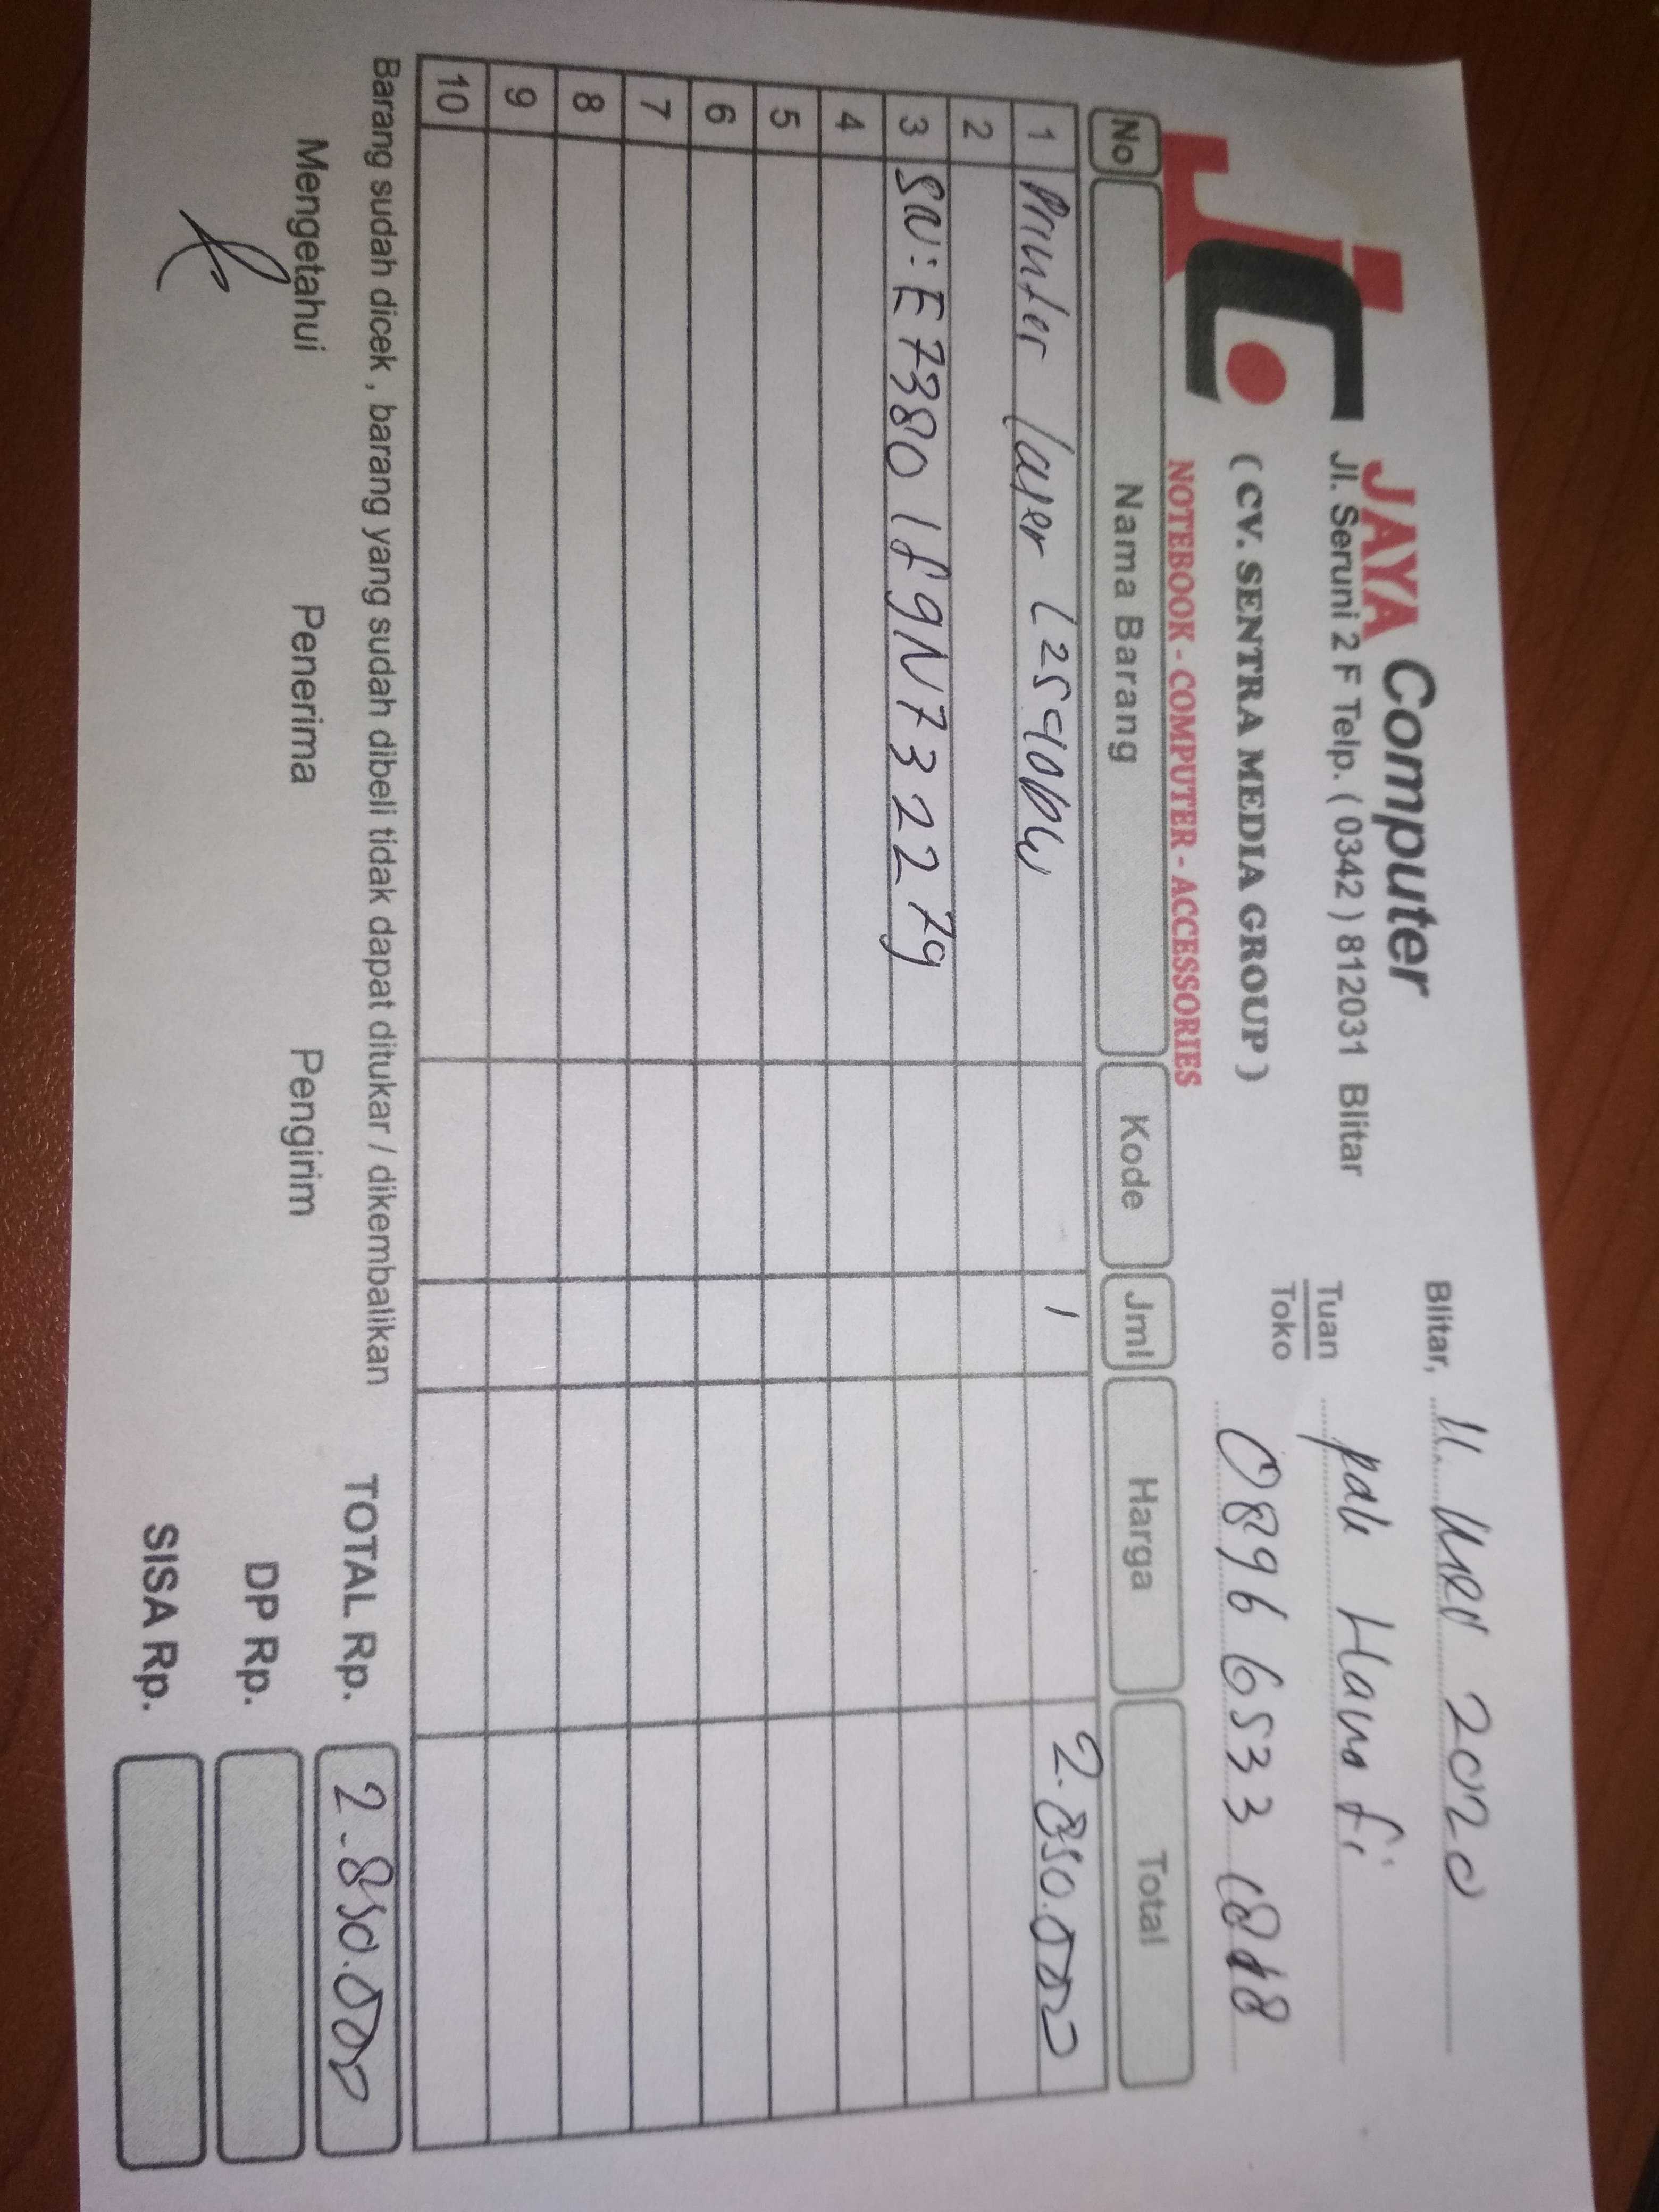 JC
JAYA Computer
Jl. Seruni 2 F Telp. ( 0342 ) 812031 Blitar
( CV. SENTRA MEDIA GROUP )
NOTEBOOK - COMPUTER - ACCESSORIES
Blitar, 11 Mei 2020
Tuan pak Hanafi
Toko 0896 6533 1818
No Nama Barang Kode Jml Harga Total
1 Printer laser L2540DW 1 2.850.000
2
3 SN: E73801F9N732279
4
5
6
7
8
9
10
Barang sudah dicek , barang yang sudah dibeli tidak dapat ditukar / dikembalikan
TOTAL Rp. 2.850.000
Mengetahui Penerima Pengirim
DP Rp.
SISA Rp.